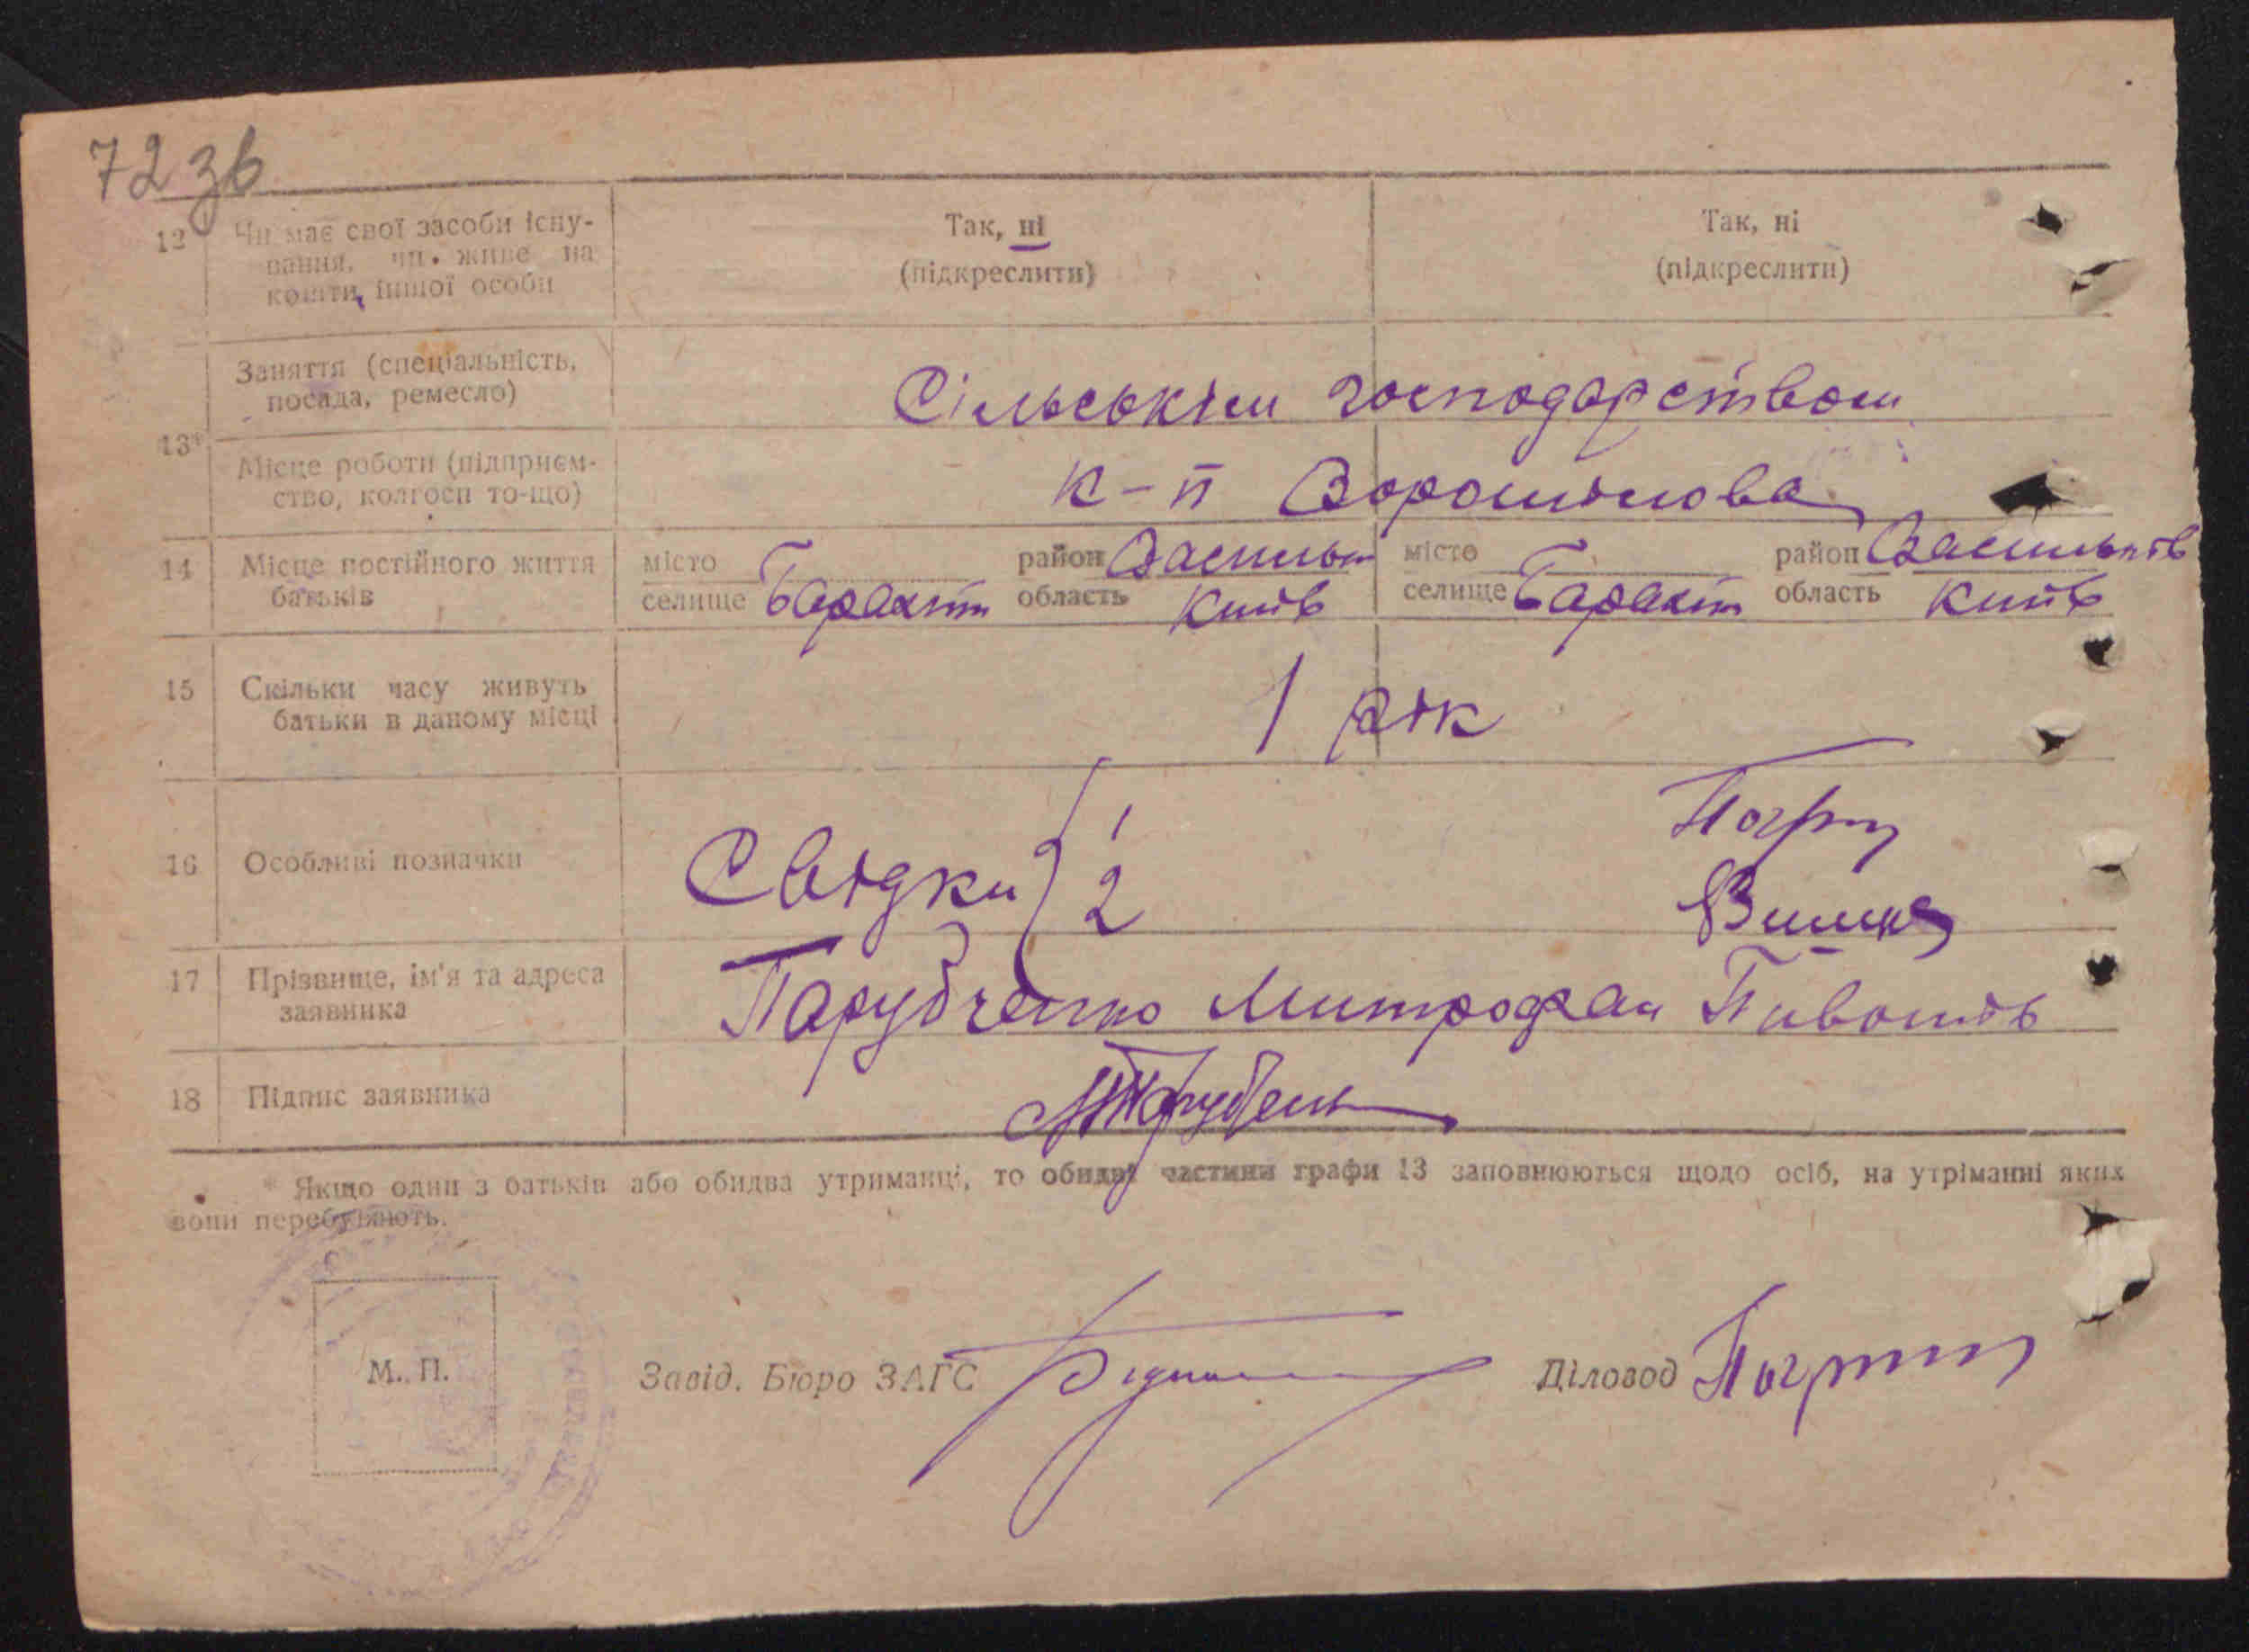 72 зв
12 Чи має свої засоби існу-
вання, чи живе на
кошти іншої особи
Так, ні
(підкреслити)
Так, ні
(підкреслити)
13*
Заняття (спеціальність,
посада, ремесло)
Сільскім господарством
Місце роботи (підприєм-
ство, колгосп то-що)
к-п Ворошілова
14 Місце постійного життя
батьків
місто
селище Барахти
район Васильк
область Київ
місто
селище Барахт
район Васильків
область Київ
15 Скільки часу живуть
батьки в даному місці
1 рік
16 Особливі позначки
Свідки
1
2
17 Прізвище, ім'я та адреса
заявника
Парубченко Митрофан
18 Підпис заявника
* Якщо один з батьків або обидва утриманці, то обидві частини графи 13 заповнюються щодо осіб, на утріманні яких
вони перебувають.
М. П.
Завід. Бюро ЗАГС
Діловод